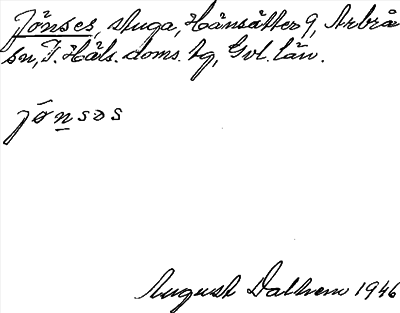 Jönses, stuga, Hånsätter 9, Arbrå
sn, V. Häls. doms. tg, Gvl. län.
jönsəs
August Dalhem 1946